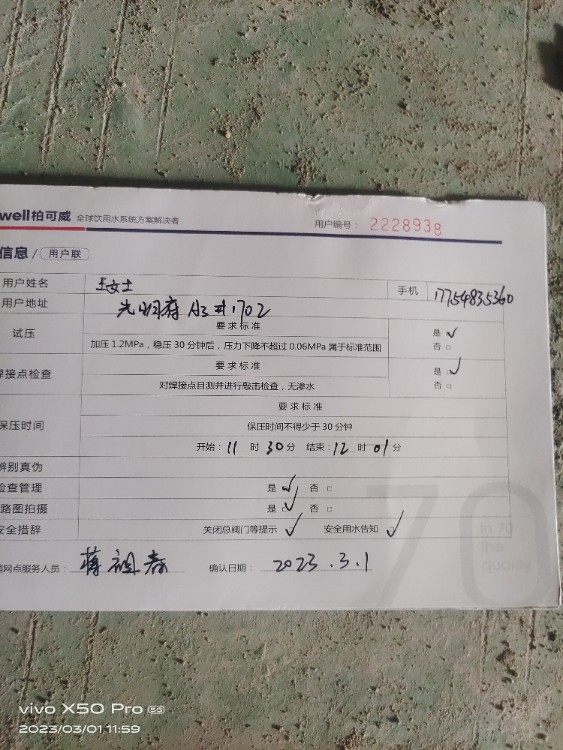 well柏可威 全球饮用水系统方案解决者 用户编号: 2228938
信息 / 用户联
用户姓名 王女士 手机 17754835360
用户地址 光明府 A3#1702
试压 要求标准 是 ✓
加压 1.2MPa，稳压 30 分钟后，压力下降不超过 0.06MPa 属于标准范围 否 □
焊接点检查 要求标准 是 ✓
对焊接点目测并进行敲击检查，无渗水 否 □
要求标准
保压时间 保压时间不得少于 30 分钟
开始: 11 时 30 分 结束: 12 时 01 分
辨别真伪
检查管理 是 ✓ 否 □
路图拍摄 是 ✓ 否 □
安全措辞 关闭总阀门等提示 ✓ 安全用水告知 ✓
网点服务人员: 蒋祖春 确认日期: 2023.3.1
70
In 70
the
quality
vivo X50 Pro 5G
2023/03/01 11:59